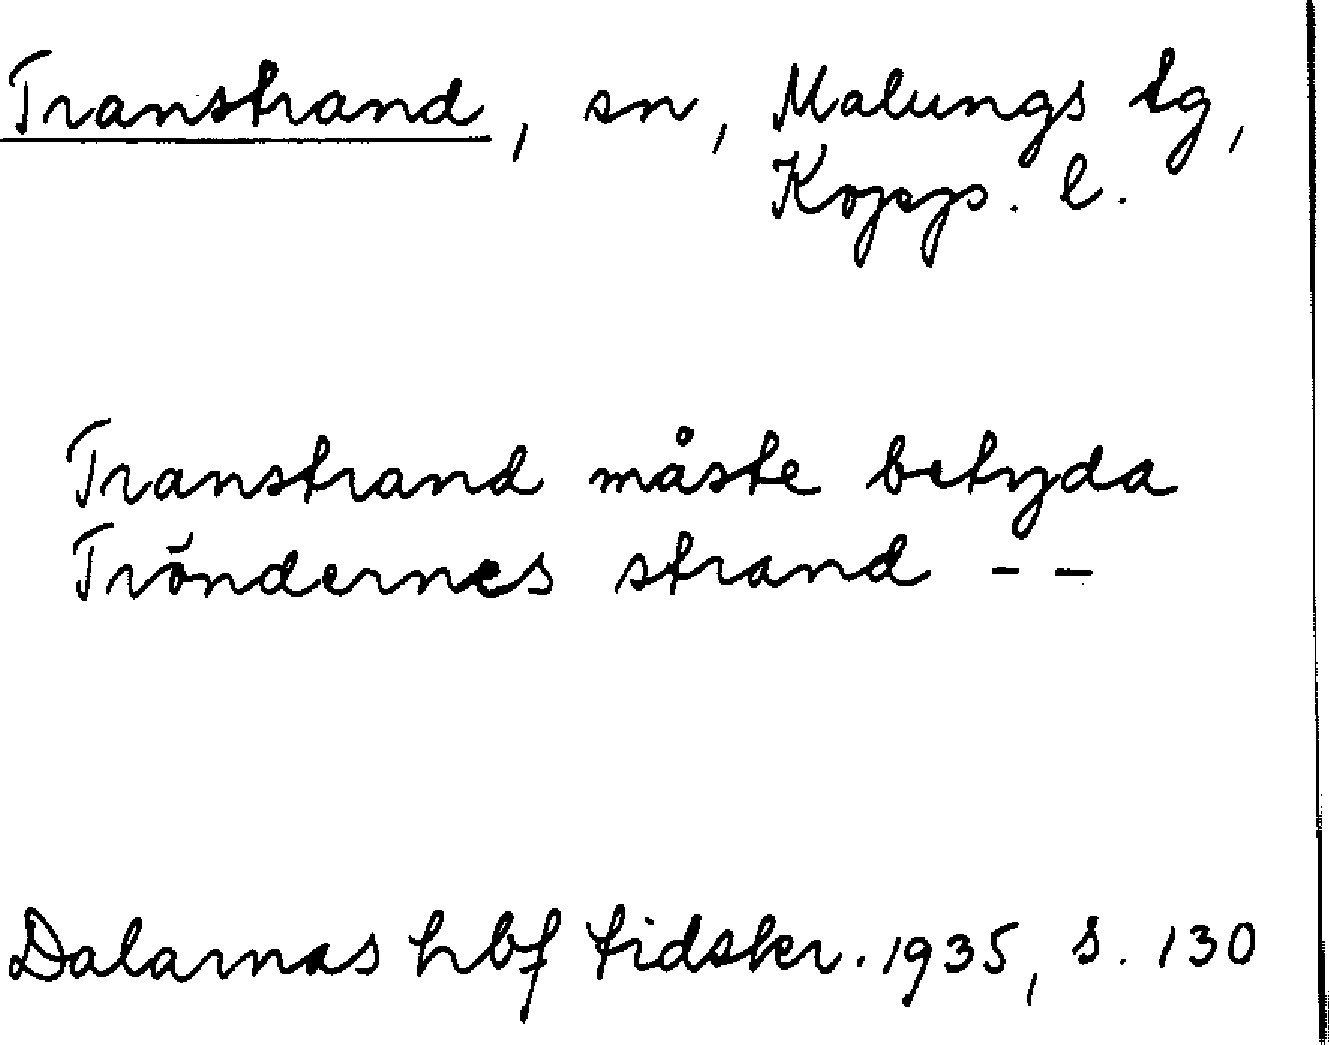 Transtrand, sn, Malungs tg,
Kopps. l.
Transtrand måste betyda
Tröndernes strand - -
Dalarnas hbf tidskr. 1935, s. 130